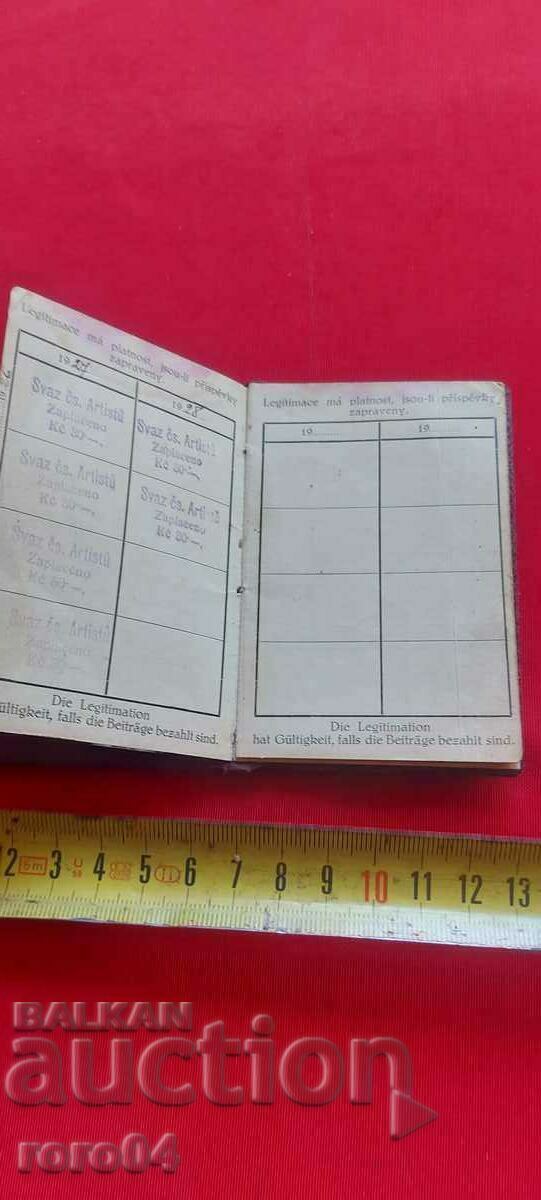 Legitimace má platnost, jsou-li příspěvky
zapraveny.
19 27
19 28
Svaz čs. Artistů
Zaplaceno
Kč 30—,
Svaz čs. Artistů
Zaplaceno
Kč 30—,
Svaz čs. Artistů
Zaplaceno
Kč 30—,
Svaz čs. Artistů
Zaplaceno
Kč 30—,
Svaz čs. Artistů
Zaplaceno
Kč 30—,
Svaz čs. Artistů
Zaplaceno
Kč 30—,
Die Legitimation
ültigkeit, falls die Beiträge bezahlt sind.
Legitimace má platnost, jsou-li příspěvky
zapraveny.
19........ 19........
Die Legitimation
hat Gültigkeit, falls die Beiträge bezahlt sind.
2 5m 3 4 5 II 6 7 8 9 10 11 12 13
BALKAN
auction
roro04